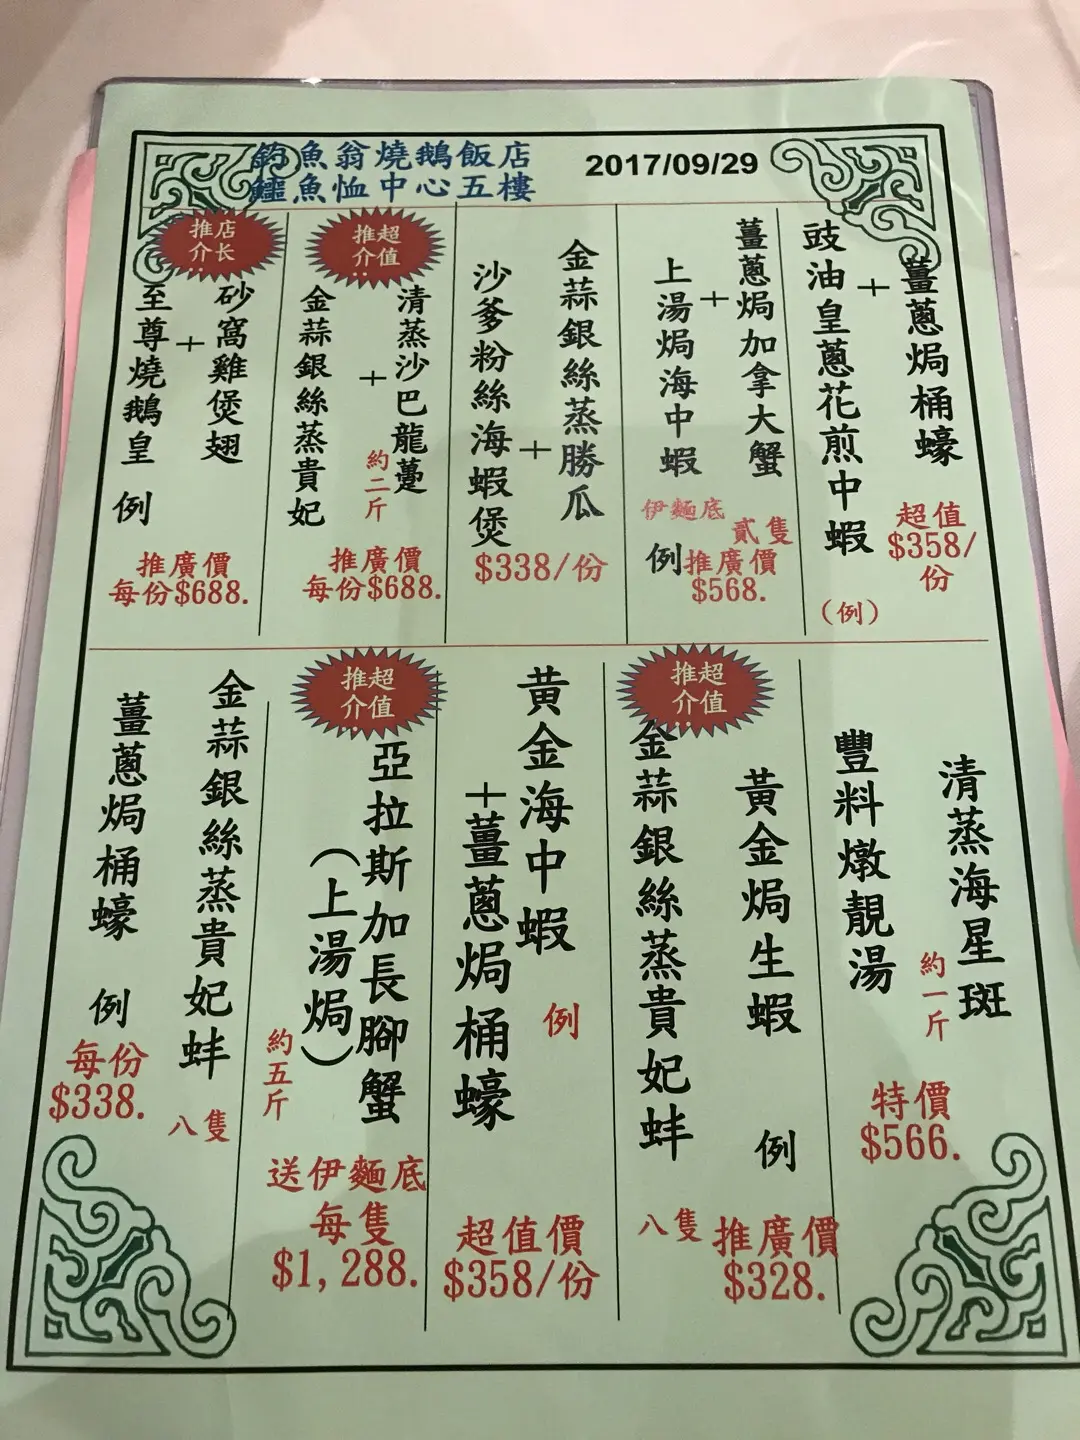 釣魚翁燒鵝飯店
鱷魚恤中心五樓
2017/09/29
薑蔥焗桶蠔
+
豉油皇蔥花煎中蝦
超值
$358/
份
(例)
薑蔥焗加拿大蟹
+
上湯焗海中蝦
貳隻
伊麵底
例
推廣價
$568.
金蒜銀絲蒸勝瓜
+
沙爹粉絲海蝦煲
$338/份
超值
推介
清蒸沙巴龍躉
約二斤
+
金蒜銀絲蒸貴妃
推廣價
每份$688.
店长
推介
砂窩雞煲翅
+
至尊燒鵝皇
例
推廣價
每份$688.
清蒸海星斑
約一斤
豐料燉靚湯
特價
$566.
超值
推介
黃金焗生蝦
例
金蒜銀絲蒸貴妃蚌
八隻
推廣價
$328.
黃金海中蝦
例
+薑蔥焗桶蠔
超值價
$358/份
超值
推介
亞拉斯加長腳蟹
(上湯焗)
約五斤
送伊麵底
每隻
$1,288.
金蒜銀絲蒸貴妃蚌
八隻
薑蔥焗桶蠔
例
每份
$338.